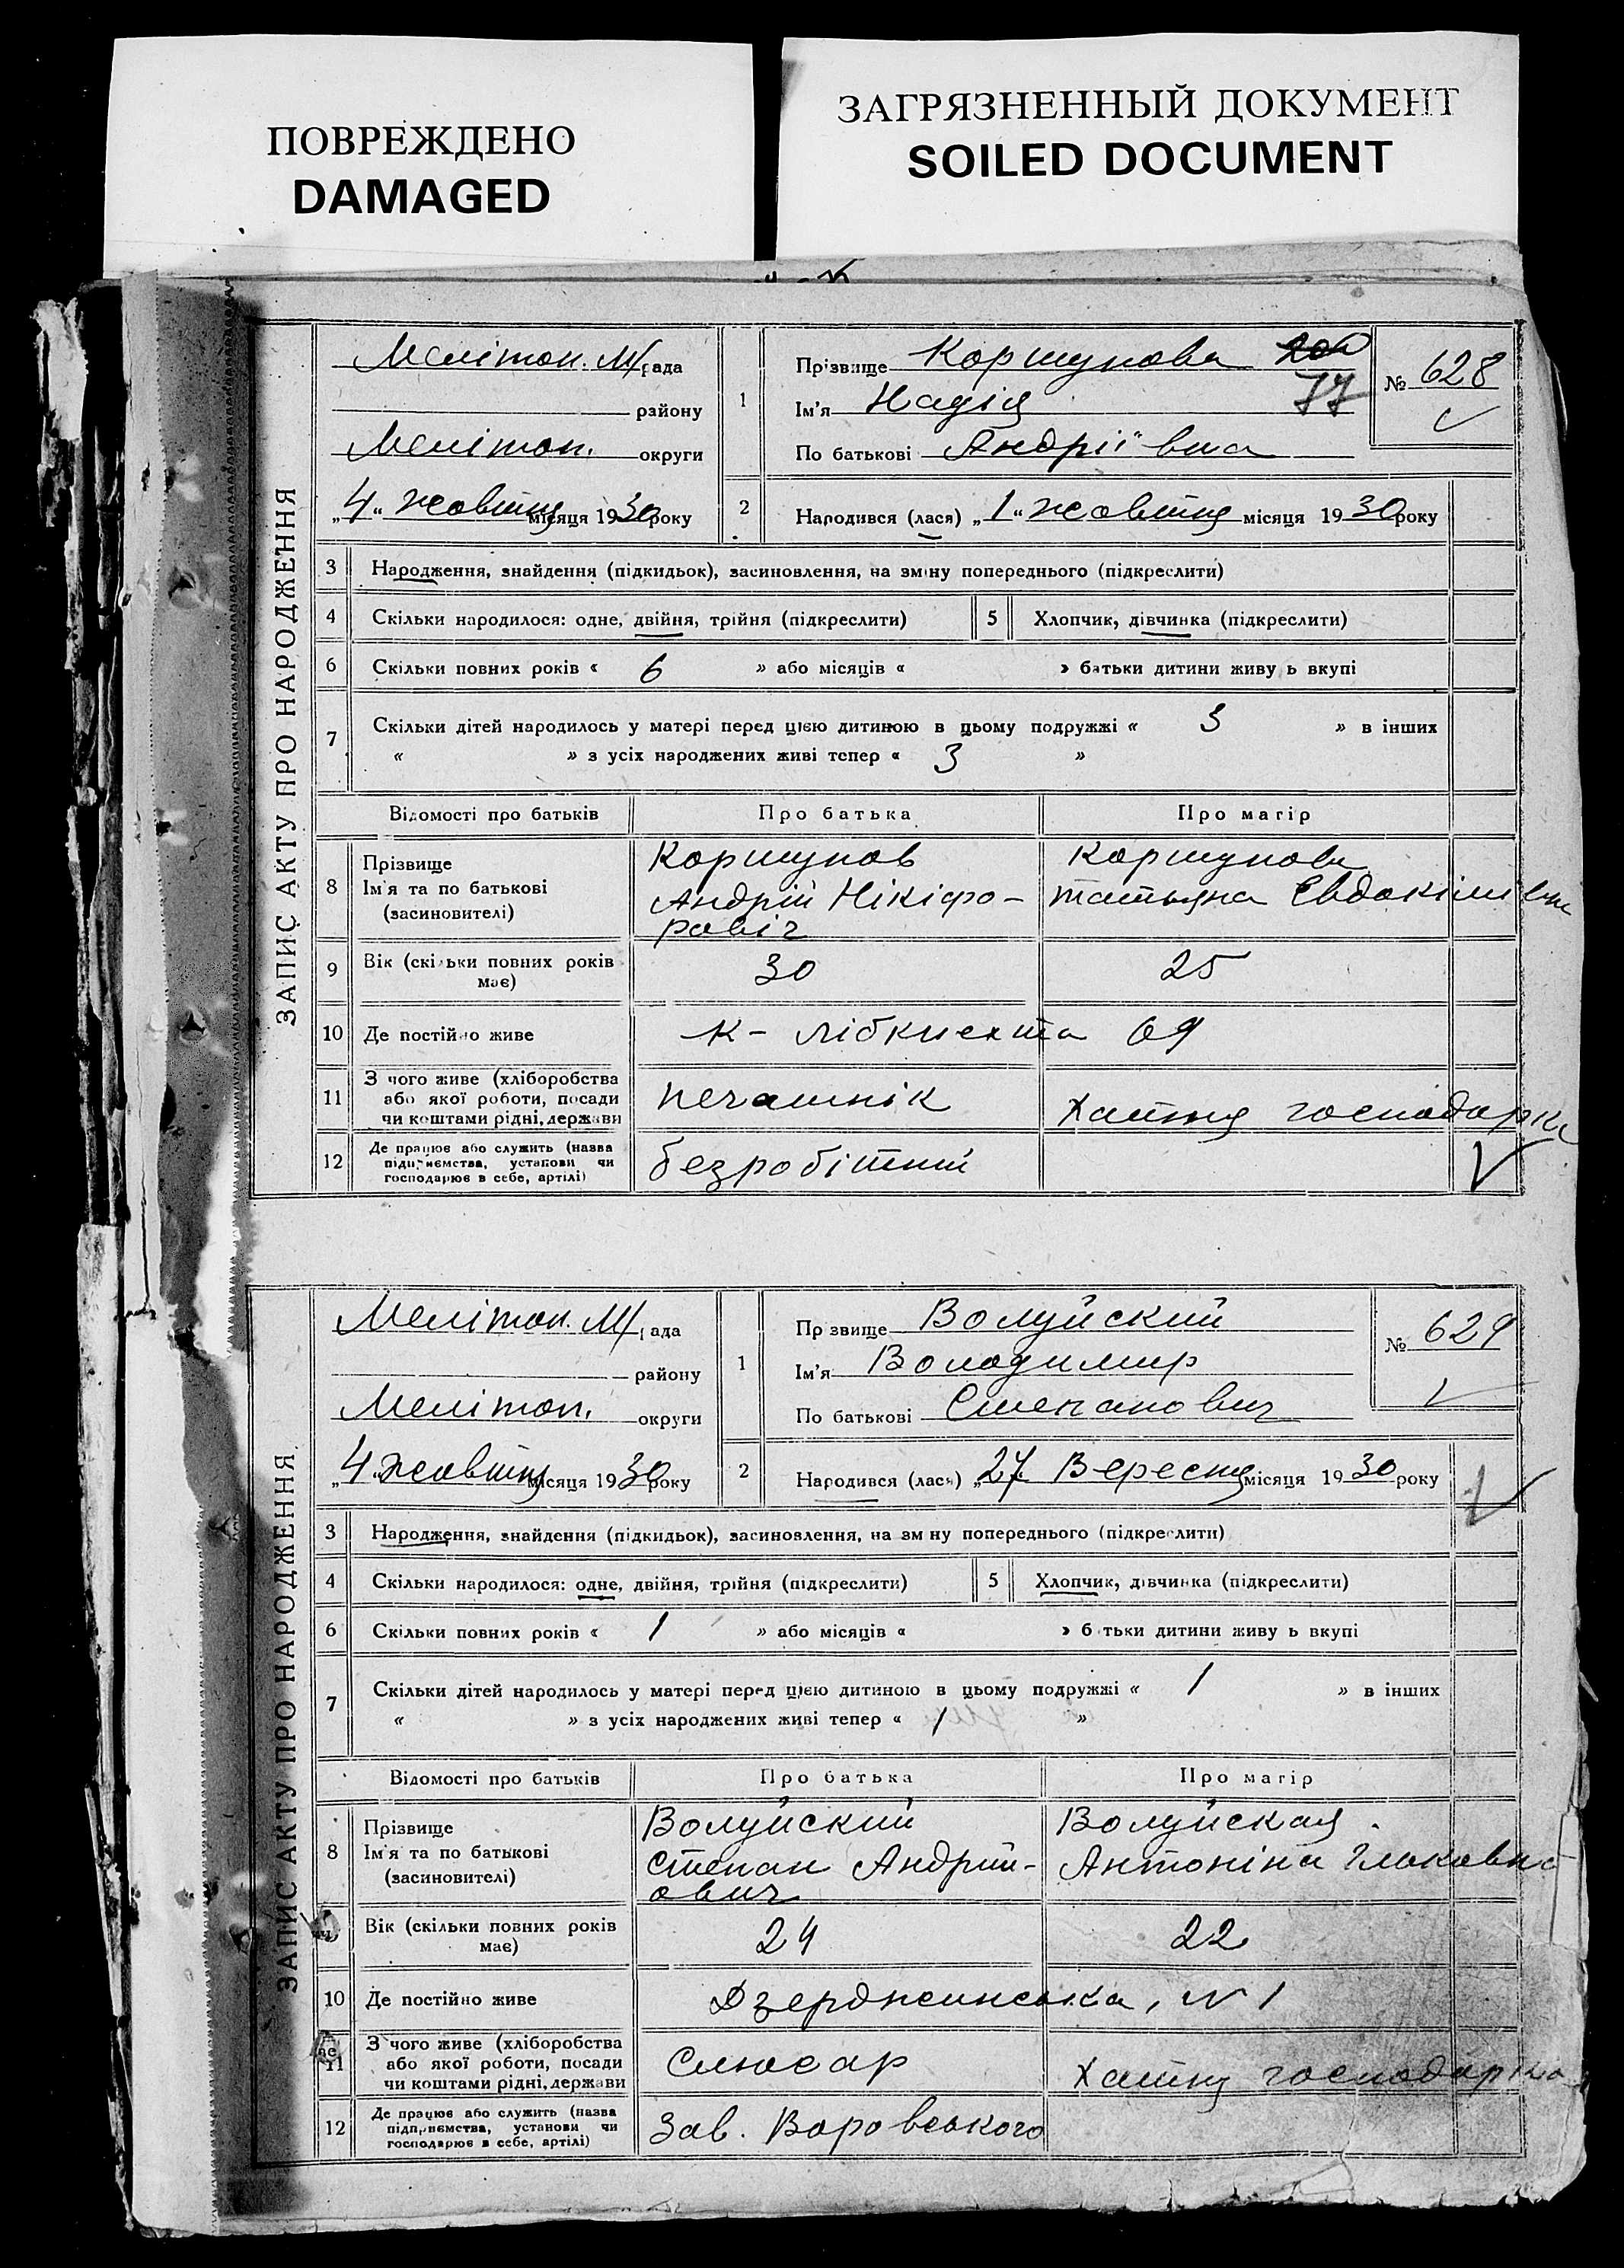 ПОВРЕЖДЕНО
DAMAGED
ЗАГРЯЗНЕННЫЙ ДОКУМЕНТ
SOILED DOCUMENT
ЗАПИС АКТУ ПРО НАРОДЖЕННЯ
Мелітоп. М/рада
району
Мелітоп. округи
„4“ жовтня місяця 1930 року
1
Прізвище Коршунова
77
Ім'я Надія
По батькові Андріївна
№ 628
2
Народився (лася) „1“ жовтня місяця 1930 року
3 Народження, знайдення (підкидьок), засиновлення, на зміну попереднього (підкреслити)
4 Скільки народилося: одне, двійня, трійня (підкреслити) 5 Хлопчик, дівчинка (підкреслити)
6 Скільки повних років « 6 » або місяців « » батьки дитини живу ь вкупі
7 Скільки дітей народилось у матері перед цією дитиною в цьому подружжі « 3 » в інших
« » з усіх народжених живі тепер « 3 »
Відомості про батьків Про батька Про матір
8 Прізвище
Ім'я та по батькові
(засиновителі)
Коршунов
Андрій Нікіфо-
ровіч
Коршунова
Татьяна Евдокімівна
9 Вік (скільки повних років
має)
30 25
10 Де постійно живе К- Лібкнехта 69
11 З чого живе (хліборобства
або якої роботи, посади
чи коштами рідні, держави
печатнік Хатня господарка
12 Де працює або служить (назва
підприємства, установи чи
господарює в себе, артілі)
безробітний
ЗАПИС АКТУ ПРО НАРОДЖЕННЯ
Мелітоп. М/рада
району
Мелітоп. округи
„4“ жовтня місяця 1930 року
1
Пр звище Волуйский
Ім'я Володимир
По батькові Степанович
№ 629
2
Народився (лася) „27“ Вересня місяця 1930 року
3 Народження, знайдення (підкидьок), засиновлення, на зм ну попереднього (підкреслити)
4 Скільки народилося: одне, двійня, трійня (підкреслити) 5 Хлопчик, дівчинка (підкреслити)
6 Скільки повних років « 1 » або місяців « » б тьки дитини живу ь вкупі
7 Скільки дітей народилось у матері перед цією дитиною в цьому подружжі « 1 » в інших
« » з усіх народжених живі тепер « 1 »
Відомості про батьків Про батька Про матір
8 Прізвище
Ім'я та по батькові
(засиновителі)
Волуйский
Степан Андрій-
ович
Волуйская
Антоніна
Вік (скільки повних років
має)
24 22
10 Де постійно живе Дзерджинська, N 1
11 З чого живе (хліборобства
або якої роботи, посади
чи коштами рідні, держави
Слюсар Хатня господарка
12 Де працює або служить (назва
підприємства, установи чи
господарює в себе, артілі)
Зав. Воровського